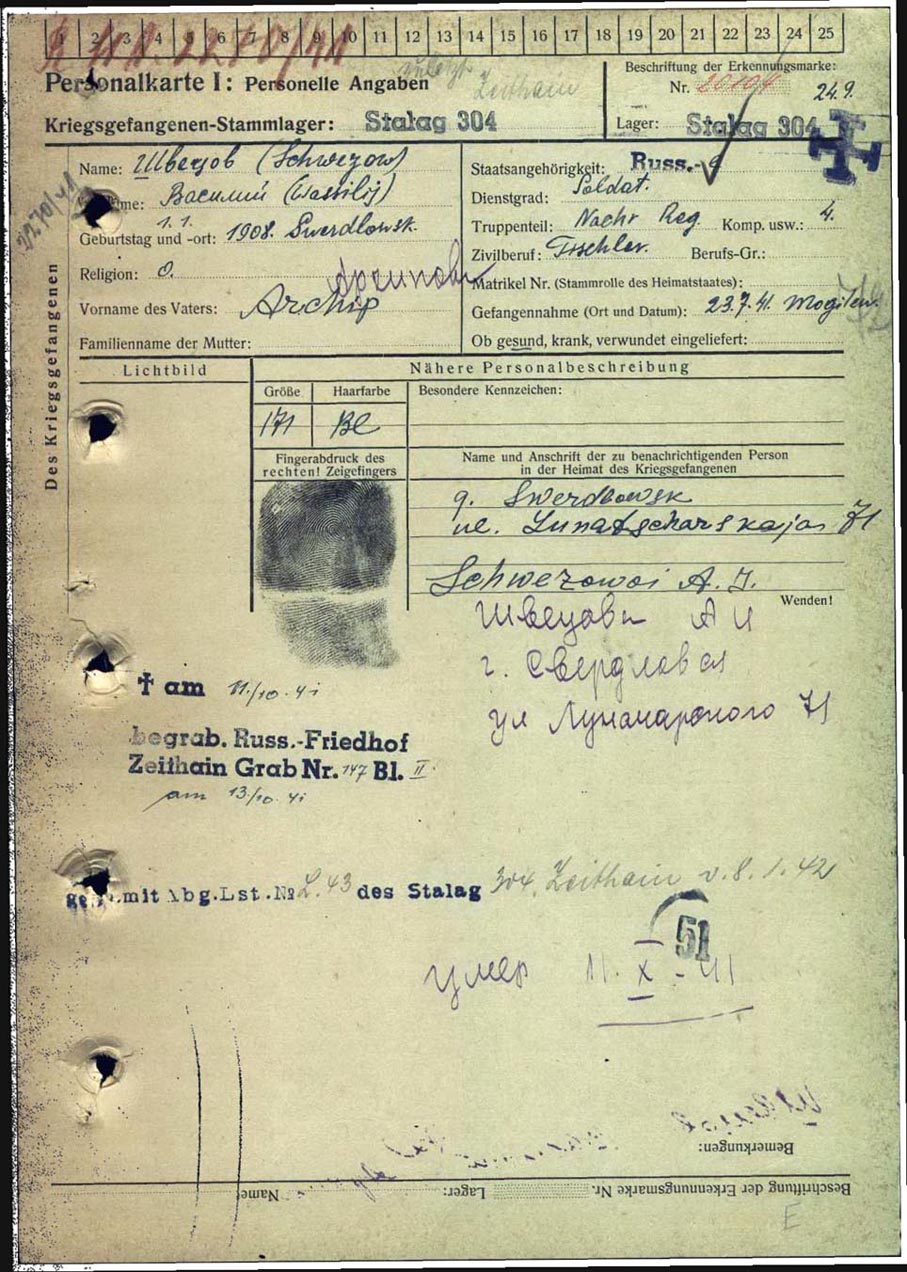 1 2 3 4 5 6 7 8 9 10 11 12 13 14 15 16 17 18 19 20 21 22 23 24 25
Personalkarte I: Personelle Angaben
Zeithain
Kriegsgefangenen-Stammlager: Stalag 304
Beschriftung der Erkennungsmarke:
Nr. 24.9.
Lager: Stalag 304
Des Kriegsgefangenen
Name: Швецов (Schwezow)
Василий (Wassilij)
Geburtstag und -ort: 1.1. 1908. Swerdlowsk.
Religion: o.
Архипович
Vorname des Vaters: Archip
Familienname der Mutter:
Staatsangehörigkeit: Russ.
Dienstgrad: Soldat.
Truppenteil: Nachr Reg. Komp. usw.: 4.
Zivilberuf: Tischler. Berufs-Gr.:
Matrikel Nr. (Stammrolle des Heimatstaates):
Gefangennahme (Ort und Datum): 23.7.41. Mogilew.
Ob gesund, krank, verwundet eingeliefert:
Lichtbild
Nähere Personalbeschreibung
Größe Haarfarbe Besondere Kennzeichen:
171 Bl
Fingerabdruck des
rechten! Zeigefingers
Name und Anschrift der zu benachrichtigenden Person
in der Heimat des Kriegsgefangenen
g. Swerdlowsk
ul. Lunatscharskaja 71
Schwezowoi A. I.
Wenden!
Швецови А И
г. Свердловск
ул Луначарского 71
✝ am 11/10.41
begrab. Russ.-Friedhof
Zeithain Grab Nr. 147 Bl. II
am 13/10.41
mit Abg.Lst.№ L.43 des Stalag 304, Zeithain v. 8.1.42
51
умер 11.X-41
Bemerkungen:
Beschriftung der Erkennungsmarke Nr. Lager: Name
E